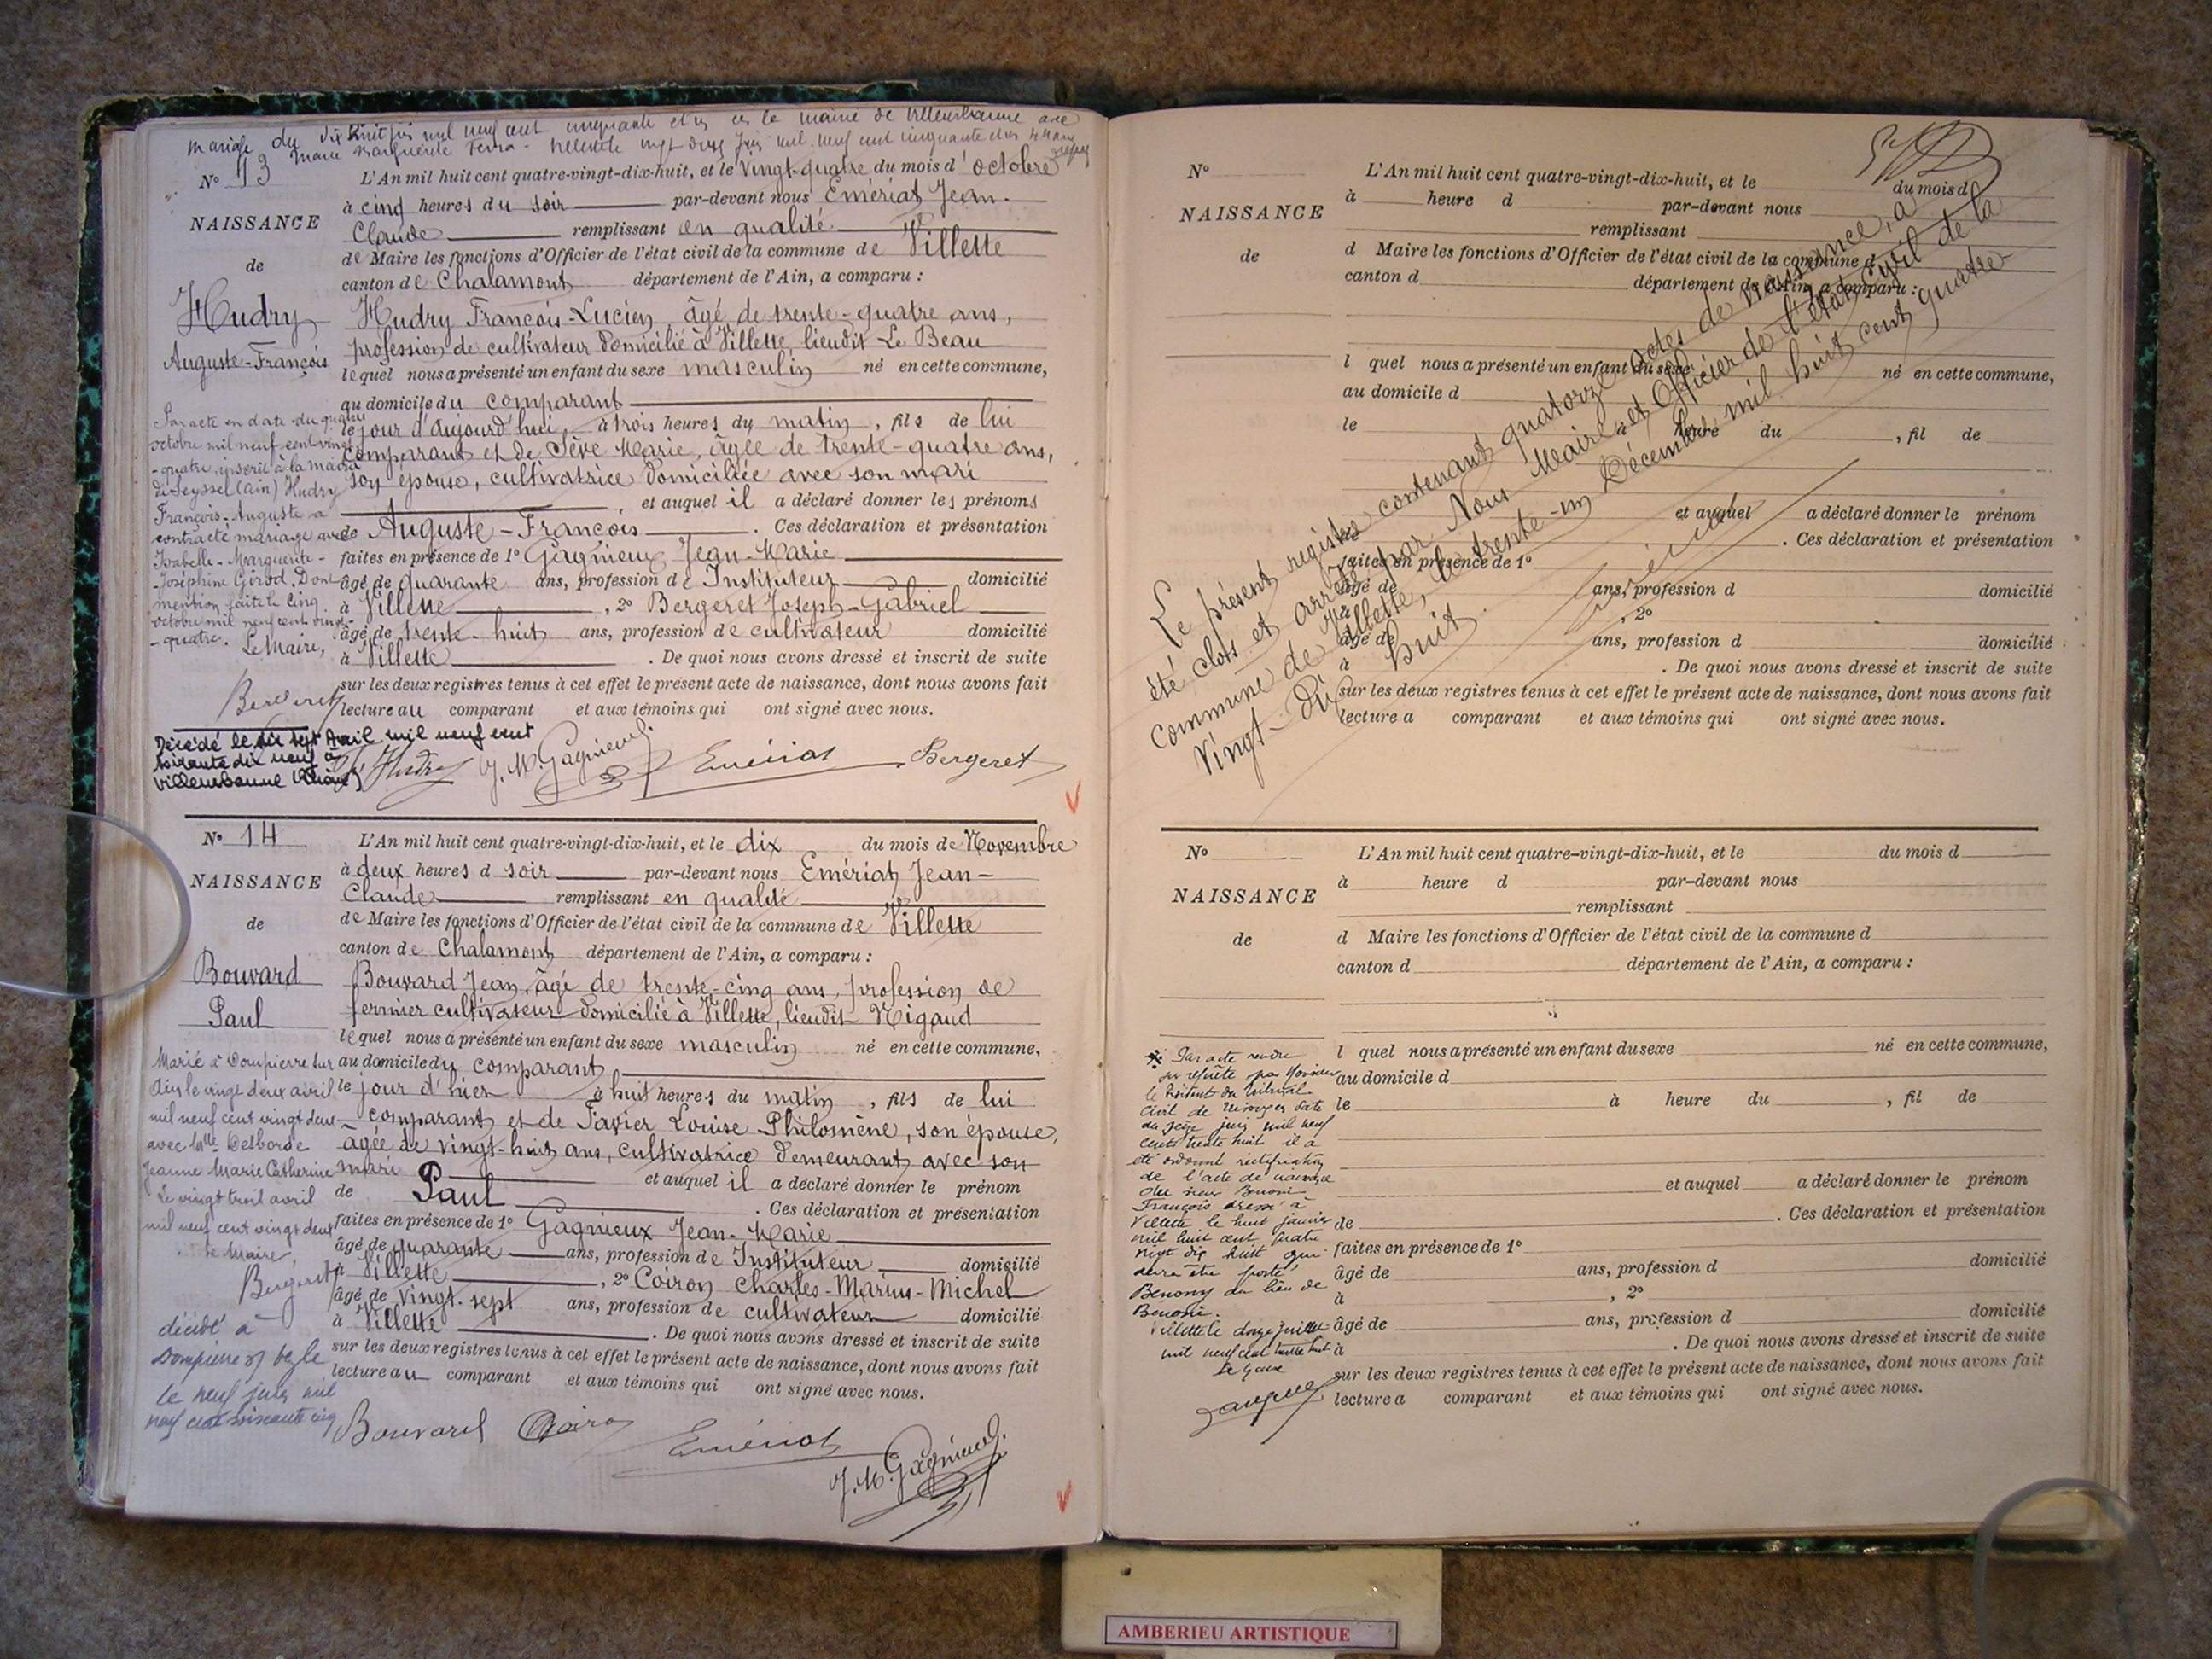 mariage du dix huit juin mil neuf cent cinquante et un en la mairie de Villeurbanne avec
Marie Marguerite Villette vingt deux juin mil neuf cent cinquante et un
N° 13 L'An mil huit cent quatre-vingt-dix-huit, et le vingt-quatre du mois d'octobre
à cinq heures du soir par-devant nous Emériat Jean-
NAISSANCE
Claude remplissant en qualité
de Maire les fonctions d'Officier de l'état civil de la commune de Villette
de
canton de Chalamont département de l'Ain, a comparu :
Hudry
Hudry François-Lucien âgé de trente-quatre ans,
profession de cultivateur domicilié à Villette, lieudit Le Beau
Auguste-François
lequel nous a présenté un enfant du sexe masculin né en cette commune,
au domicile du comparant
le jour d'aujourd'hui à trois heures du matin, fils de lui
comparant et de Sève Marie, âgée de trente-quatre ans,
son épouse, cultivatrice domiciliée avec son mari
et auquel il a déclaré donner les prénoms
de Auguste-François. Ces déclaration et présentation
faites en présence de 1° Gagnieux Jean-Marie
âgé de quarante ans, profession de Instituteur domicilié
à Villette, 2° Bergeret Joseph-Gabriel
âgé de trente-huit ans, profession de cultivateur domicilié
à Villette. De quoi nous avons dressé et inscrit de suite
sur les deux registres tenus à cet effet le présent acte de naissance, dont nous avons fait
lecture au comparant et aux témoins qui ont signé avec nous.
Par acte en date du quatre
octobre mil neuf cent vingt
-quatre inscrit à la mairie
de Seyssel (Ain) Hudry
François-Auguste a
contracté mariage avec
Isabelle-Marguerite-
-Joséphine Girod. Dont
mention faite le cinq
octobre mil neuf cent vingt-
-quatre. Le Maire,
Bergeret
Décédé le dix sept Avril mil neuf cent
soixante dix neuf à
Villeurbanne (Rhône)
Hudry J. M. Gagnieux Emériat Bergeret
N° 14 L'An mil huit cent quatre-vingt-dix-huit, et le dix du mois de Novembre
à deux heures d soir par-devant nous Emériat Jean-
NAISSANCE
Claude remplissant en qualité
de Maire les fonctions d'Officier de l'état civil de la commune de Villette
de
canton de Chalamont département de l'Ain, a comparu :
Bouvard
Bouvard Jean, âgé de trente-cinq ans, profession de
Paul
fermier cultivateur domicilié à Villette, lieudit Nigaud
lequel nous a présenté un enfant du sexe masculin né en cette commune,
au domicile du comparant
le jour d'hier à huit heures du matin, fils de lui
comparant et de Tavier Louise Philomène, son épouse,
âgée de vingt-huit ans, cultivatrice demeurant avec son
mari et auquel il a déclaré donner le prénom
de Paul. Ces déclaration et présentation
faites en présence de 1° Gagnieux Jean-Marie
âgé de quarante ans, profession de Instituteur domicilié
à Villette, 2° Coiron Charles-Marius-Michel
âgé de vingt-sept ans, profession de cultivateur domicilié
à Villette. De quoi nous avons dressé et inscrit de suite
sur les deux registres tenus à cet effet le présent acte de naissance, dont nous avons fait
lecture au comparant et aux témoins qui ont signé avec nous.
Marié à Dompierre sur
Ain le vingt deux avril
mil neuf cent vingt deux
avec Mlle Delborde
Jeanne Marie Catherine
Le vingt trois avril
mil neuf cent vingt deux
Le Maire,
Bergeret
décédé à
Dompierre s/ Veyle
le neuf juin mil
neuf cent soixante cinq
Bouvard Coiron Emériat
J. M. Gagnieux
N° L'An mil huit cent quatre-vingt-dix-huit, et le du mois d
à heure d par-devant nous
NAISSANCE
remplissant
d Maire les fonctions d'Officier de l'état civil de la commune d
de
canton d département de l'Ain, a comparu :
l quel nous a présenté un enfant du sexe né en cette commune,
au domicile d
le à heure du , fil de
et auquel a déclaré donner le prénom
. Ces déclaration et présentation
faites en présence de 1°
âgé de ans, profession d domicilié
à , 2°
âgé de ans, profession d domicilié
à . De quoi nous avons dressé et inscrit de suite
sur les deux registres tenus à cet effet le présent acte de naissance, dont nous avons fait
lecture a comparant et aux témoins qui ont signé avec nous.
Le présent registre contenant quatorze actes de naissance, a
été clos et arrêté par Nous Maire et Officier de l'état civil de la
commune de Villette, le trente-un Décembre mil huit cent quatre-
vingt-dix huit.
Emériat
N° L'An mil huit cent quatre-vingt-dix-huit, et le du mois d
à heure d par-devant nous
NAISSANCE
remplissant
de
d Maire les fonctions d'Officier de l'état civil de la commune d
canton d département de l'Ain, a comparu :
l quel nous a présenté un enfant du sexe né en cette commune,
au domicile d
le à heure du , fil de
et auquel a déclaré donner le prénom
de . Ces déclaration et présentation
faites en présence de 1°
âgé de ans, profession d domicilié
à , 2°
âgé de ans, profession d domicilié
à . De quoi nous avons dressé et inscrit de suite
sur les deux registres tenus à cet effet le présent acte de naissance, dont nous avons fait
lecture a comparant et aux témoins qui ont signé avec nous.
Par acte rendu
sur requête par Monsieur
le Président du Tribunal
Civil de date
du seize juin mil neuf
cent trente huit il a
été ordonné rectification
de l'acte de naissance
du sieur Benoni
François dressé à
Villette le huit janvier
mil huit cent quatre
vingt dix huit qui
devra être porté
Benony au lieu de
Benoni.
Villette le douze juillet
mil neuf cent trente huit
AMBERIEU ARTISTIQUE